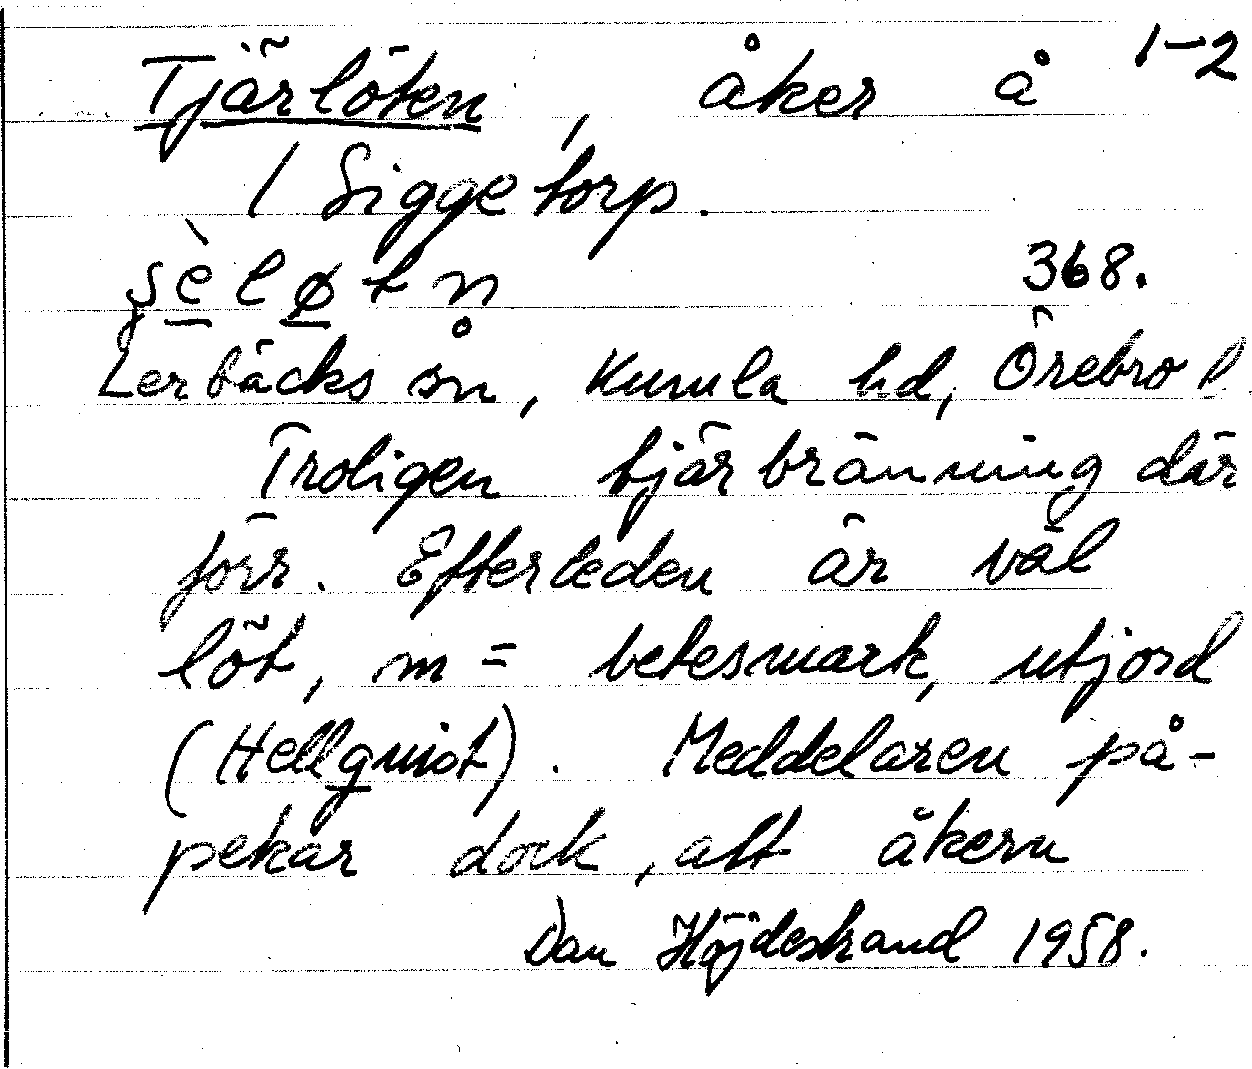 Tjärlöten, åker å 1-2
1 Siggetorp.
368.
Lerbäcks sn, Kumla hd, Örebro l
Troligen tjärbränning där
förr. Efterleden är väl
löt, m = betesmark, utjord
(Hellquist). Meddelaren på-
pekar dock, att åkern
Dan Höjdestrand 1958.